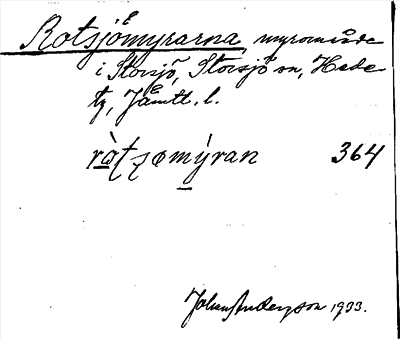 Rotsjömyrarna, myrområde
i Storsjö, Storsjö sn, Hede
tg, Jämtl. l.
ròtʒømýran 364
Johan Anderzson 1933.